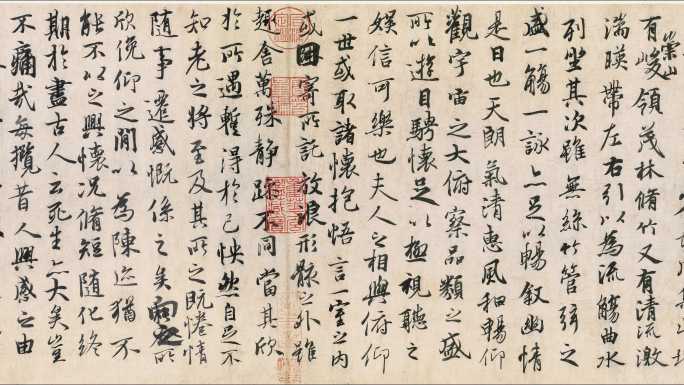 有崇山峻領茂林脩竹又有清流激
湍暎帶左右引以為流觴曲水
列坐其次雖無絲竹管弦之
盛一觴一詠亦足以暢叙幽情
是日也天朗氣清惠風和暢仰
觀宇宙之大俯察品類之盛
所以遊目騁懷足以極視聽之
娛信可樂也夫人之相與俯仰
一世或取諸懷抱悟言一室之內
或因寄所託放浪形骸之外雖
趣舍萬殊靜躁不同當其欣
於所遇蹔得於己怏然自足不
知老之將至及其所之既惓情
隨事遷感慨係之矣向之所
欣俛仰之間以為陳迹猶不
能不以之興懷況脩短隨化終
期於盡古人云死生亦大矣豈
不痛哉每攬昔人興感之由